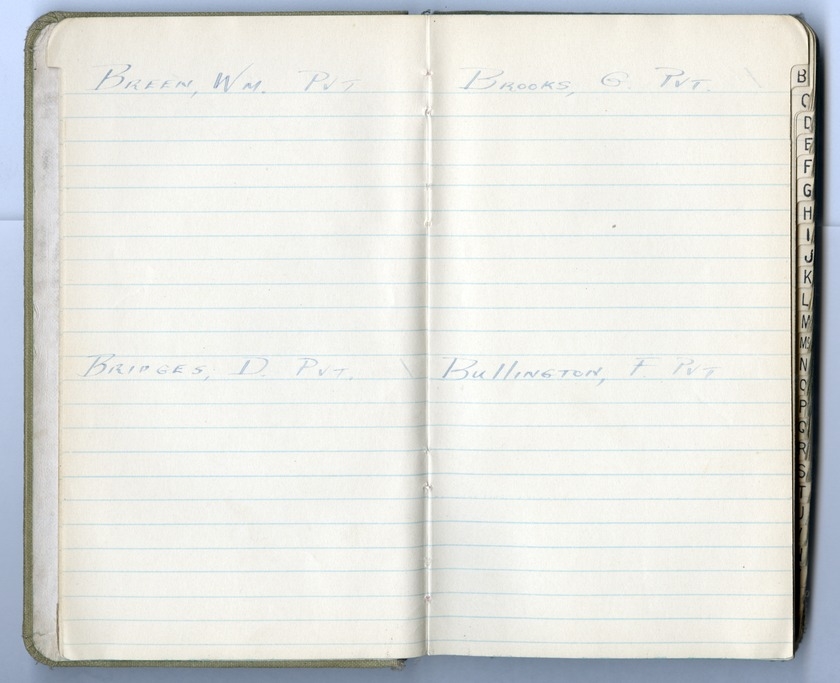 BREEN, WM. PVT
BRIDGES, D. PVT.
BROOKS, G. PVT.
BUllINGTON, F. PVT
B
C
D
E
F
G
H
I
J
K
L
M
Mc
N
O
P
Q
R
S
T
U